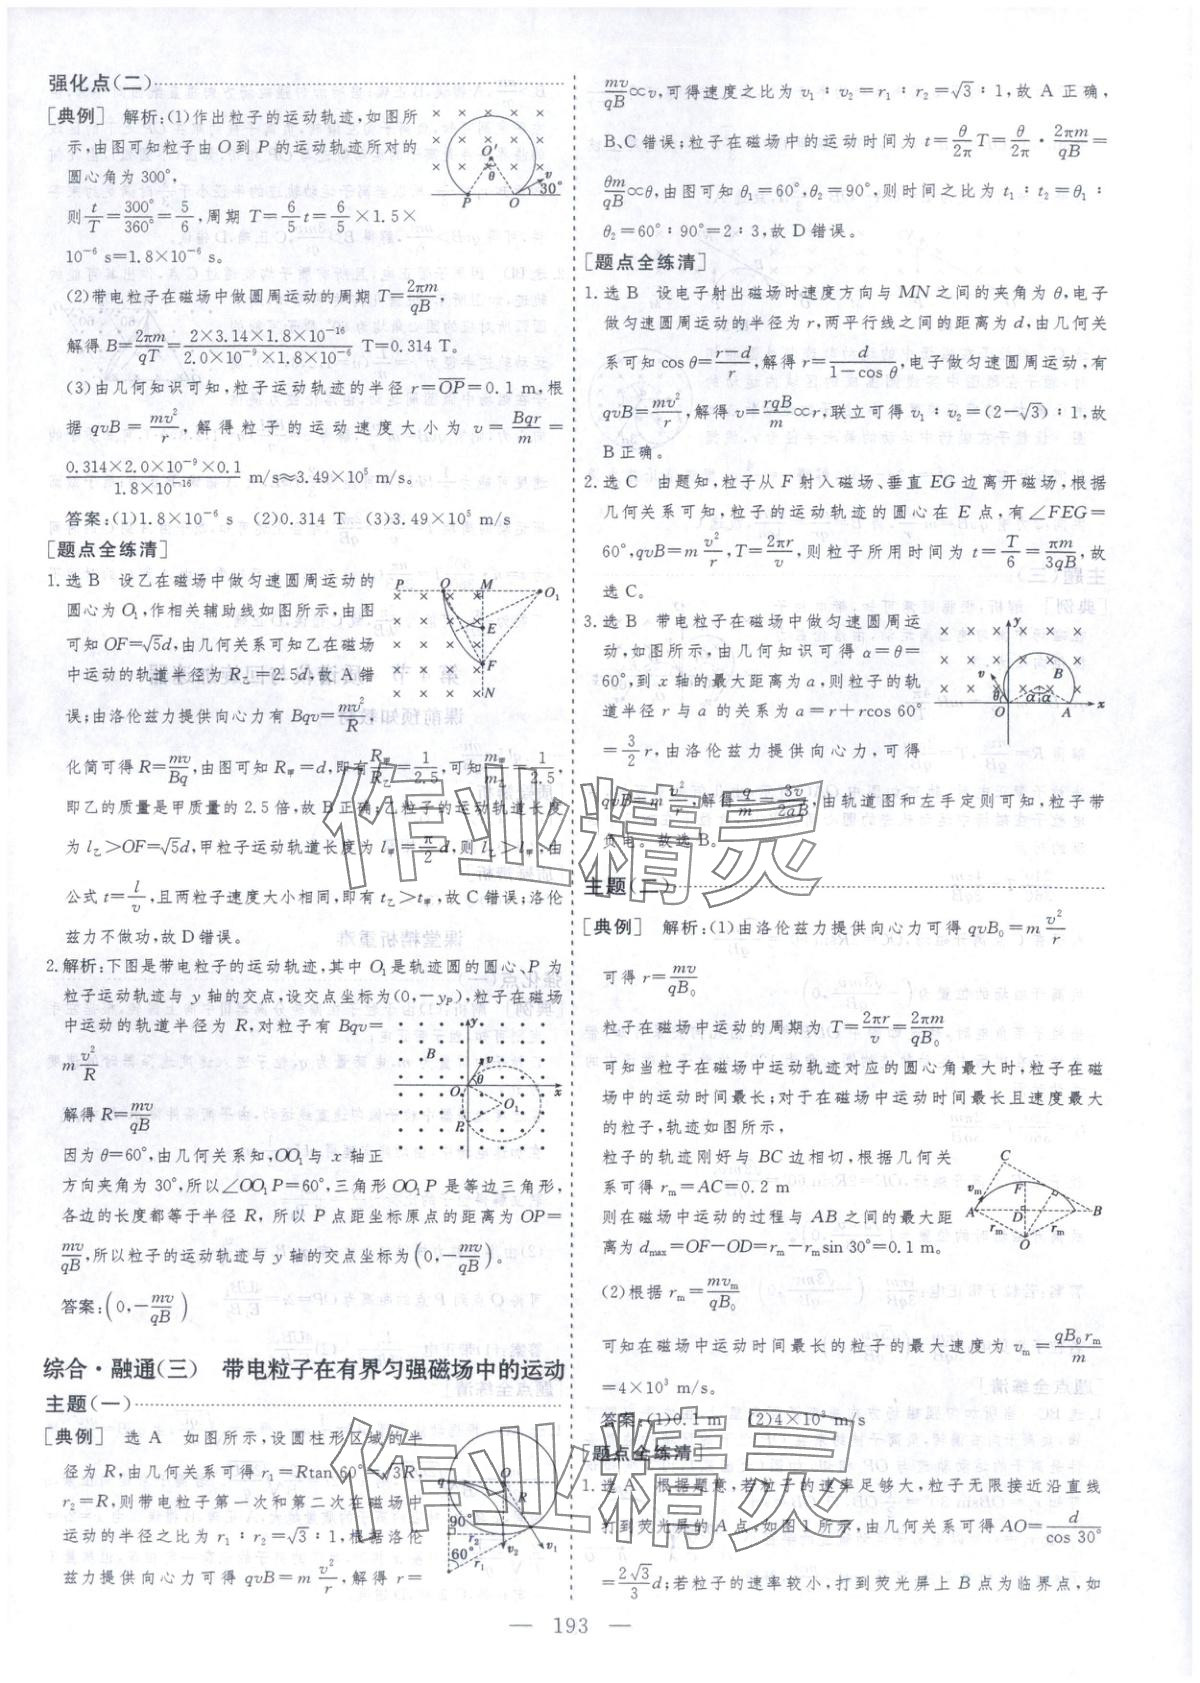 强化点(二)
[典例] 解析:(1)作出粒子的运动轨迹,如图所
示,由图可知粒子由O到P的运动轨迹所对的
圆心角为300°,
则t/T=300°/360°=5/6,周期T=6/5t=6/5×1.5×
10⁻⁶ s=1.8×10⁻⁶ s。
(2)带电粒子在磁场中做圆周运动的周期T=2πm/qB,
解得B=2πm/qT=2×3.14×1.8×10⁻¹⁶/2.0×10⁻⁹×1.8×10⁻⁶ T=0.314 T。
(3)由几何知识可知,粒子运动轨迹的半径r=OP=0.1 m,根
据qvB=mv²/r,解得粒子的运动速度大小为v=Bqr/m=
0.314×2.0×10⁻⁹×0.1/1.8×10⁻¹⁶ m/s≈3.49×10⁵ m/s。
答案:(1)1.8×10⁻⁶ s (2)0.314 T (3)3.49×10⁵ m/s
[题点全练清]
1.选B 设乙在磁场中做匀速圆周运动的
圆心为O₁,作相关辅助线如图所示,由图
可知OF=√5d,由几何关系可知乙在磁场
中运动的轨道半径为R乙=2.5d,故A错
误;由洛伦兹力提供向心力有Bqv=mv²/R,
化简可得R=mv/Bq,由图可知R甲=d,即有R甲/R乙=1/2.5,可知m甲/m乙=1/2.5,
即乙的质量是甲质量的2.5倍,故B正确;乙粒子的运动轨迹长度
为l乙>OF=√5d,甲粒子运动轨迹长度为l甲=π/2d,则l乙>l甲,由
公式t=l/v,且两粒子速度大小相同,即有t乙>t甲,故C错误;洛伦
兹力不做功,故D错误。
2.解析:下图是带电粒子的运动轨迹,其中O₁是轨迹圆的圆心、P为
粒子运动轨迹与y轴的交点,设交点坐标为(0,-yP),粒子在磁场
中运动的轨道半径为R,对粒子有Bqv=
mv²/R
解得R=mv/qB
因为θ=60°,由几何关系知,OO₁与x轴正
方向夹角为30°,所以∠OO₁P=60°,三角形OO₁P是等边三角形,
各边的长度都等于半径R,所以P点距坐标原点的距离为OP=
mv/qB,所以粒子的运动轨迹与y轴的交点坐标为(0,-mv/qB)。
答案:(0,-mv/qB)
综合·融通(三) 带电粒子在有界匀强磁场中的运动
主题(一)
[典例] 选A 如图所示,设圆柱形区域的半
径为R,由几何关系可得r₁=Rtan 60°=√3R,
r₂=R,则带电粒子第一次和第二次在磁场中
运动的半径之比为r₁∶r₂=√3∶1,根据洛伦
兹力提供向心力可得qvB=mv²/r,解得r=
mv/qB∝v,可得速度之比为v₁∶v₂=r₁∶r₂=√3∶1,故A正确,
B、C错误;粒子在磁场中的运动时间为t=θ/2πT=θ/2π·2πm/qB=
θm/qB∝θ,由图可知θ₁=60°,θ₂=90°,则时间之比为t₁∶t₂=θ₁∶
θ₂=60°∶90°=2∶3,故D错误。
[题点全练清]
1.选B 设电子射出磁场时速度方向与MN之间的夹角为θ,电子
做匀速圆周运动的半径为r,两平行线之间的距离为d,由几何关
系可知cos θ=r-d/r,解得r=d/1-cos θ,电子做匀速圆周运动,有
qvB=mv²/r,解得v=rqB/m∝r,联立可得v₁∶v₂=(2-√3)∶1,故
B正确。
2.选C 由题知,粒子从F射入磁场、垂直EG边离开磁场,根据
几何关系可知,粒子的运动轨迹的圆心在E点,有∠FEG=
60°,qvB=mv²/r,T=2πr/v,则粒子所用时间为t=T/6=πm/3qB,故
选C。
3.选B 带电粒子在磁场中做匀速圆周运
动,如图所示,由几何知识可得α=θ=
60°,到x轴的最大距离为a,则粒子的轨
道半径r与a的关系为a=r+rcos 60°
=3/2r,由洛伦兹力提供向心力,可得
qvB=mv²/r,解得q/m=3v/2aB,由轨道图和左手定则可知,粒子带
负电。故选B。
主题(二)
[典例] 解析:(1)由洛伦兹力提供向心力可得qvB₀=mv²/r
可得r=mv/qB₀
粒子在磁场中运动的周期为T=2πr/v=2πm/qB₀
可知当粒子在磁场中运动轨迹对应的圆心角最大时,粒子在磁
场中的运动时间最长;对于在磁场中运动时间最长且速度最大
的粒子,轨迹如图所示,
粒子的轨迹刚好与BC边相切,根据几何关
系可得rₘ=AC=0.2 m
则在磁场中运动的过程与AB之间的最大距
离为dmax=OF-OD=rₘ-rₘsin 30°=0.1 m。
(2)根据rₘ=mvₘ/qB₀
可知在磁场中运动时间最长的粒子的最大速度为vₘ=qB₀rₘ/m
=4×10³ m/s。
答案:(1)0.1 m (2)4×10³ m/s
[题点全练清]
1.选A 根据题意,若粒子的速率足够大,粒子无限接近沿直线
打到荧光屏的A点,如图1所示,由几何关系可得AO=d/cos 30°
=2√3/3d;若粒子的速率较小,打到荧光屏上B点为临界点,如
— 193 —
作业精灵
作业精灵